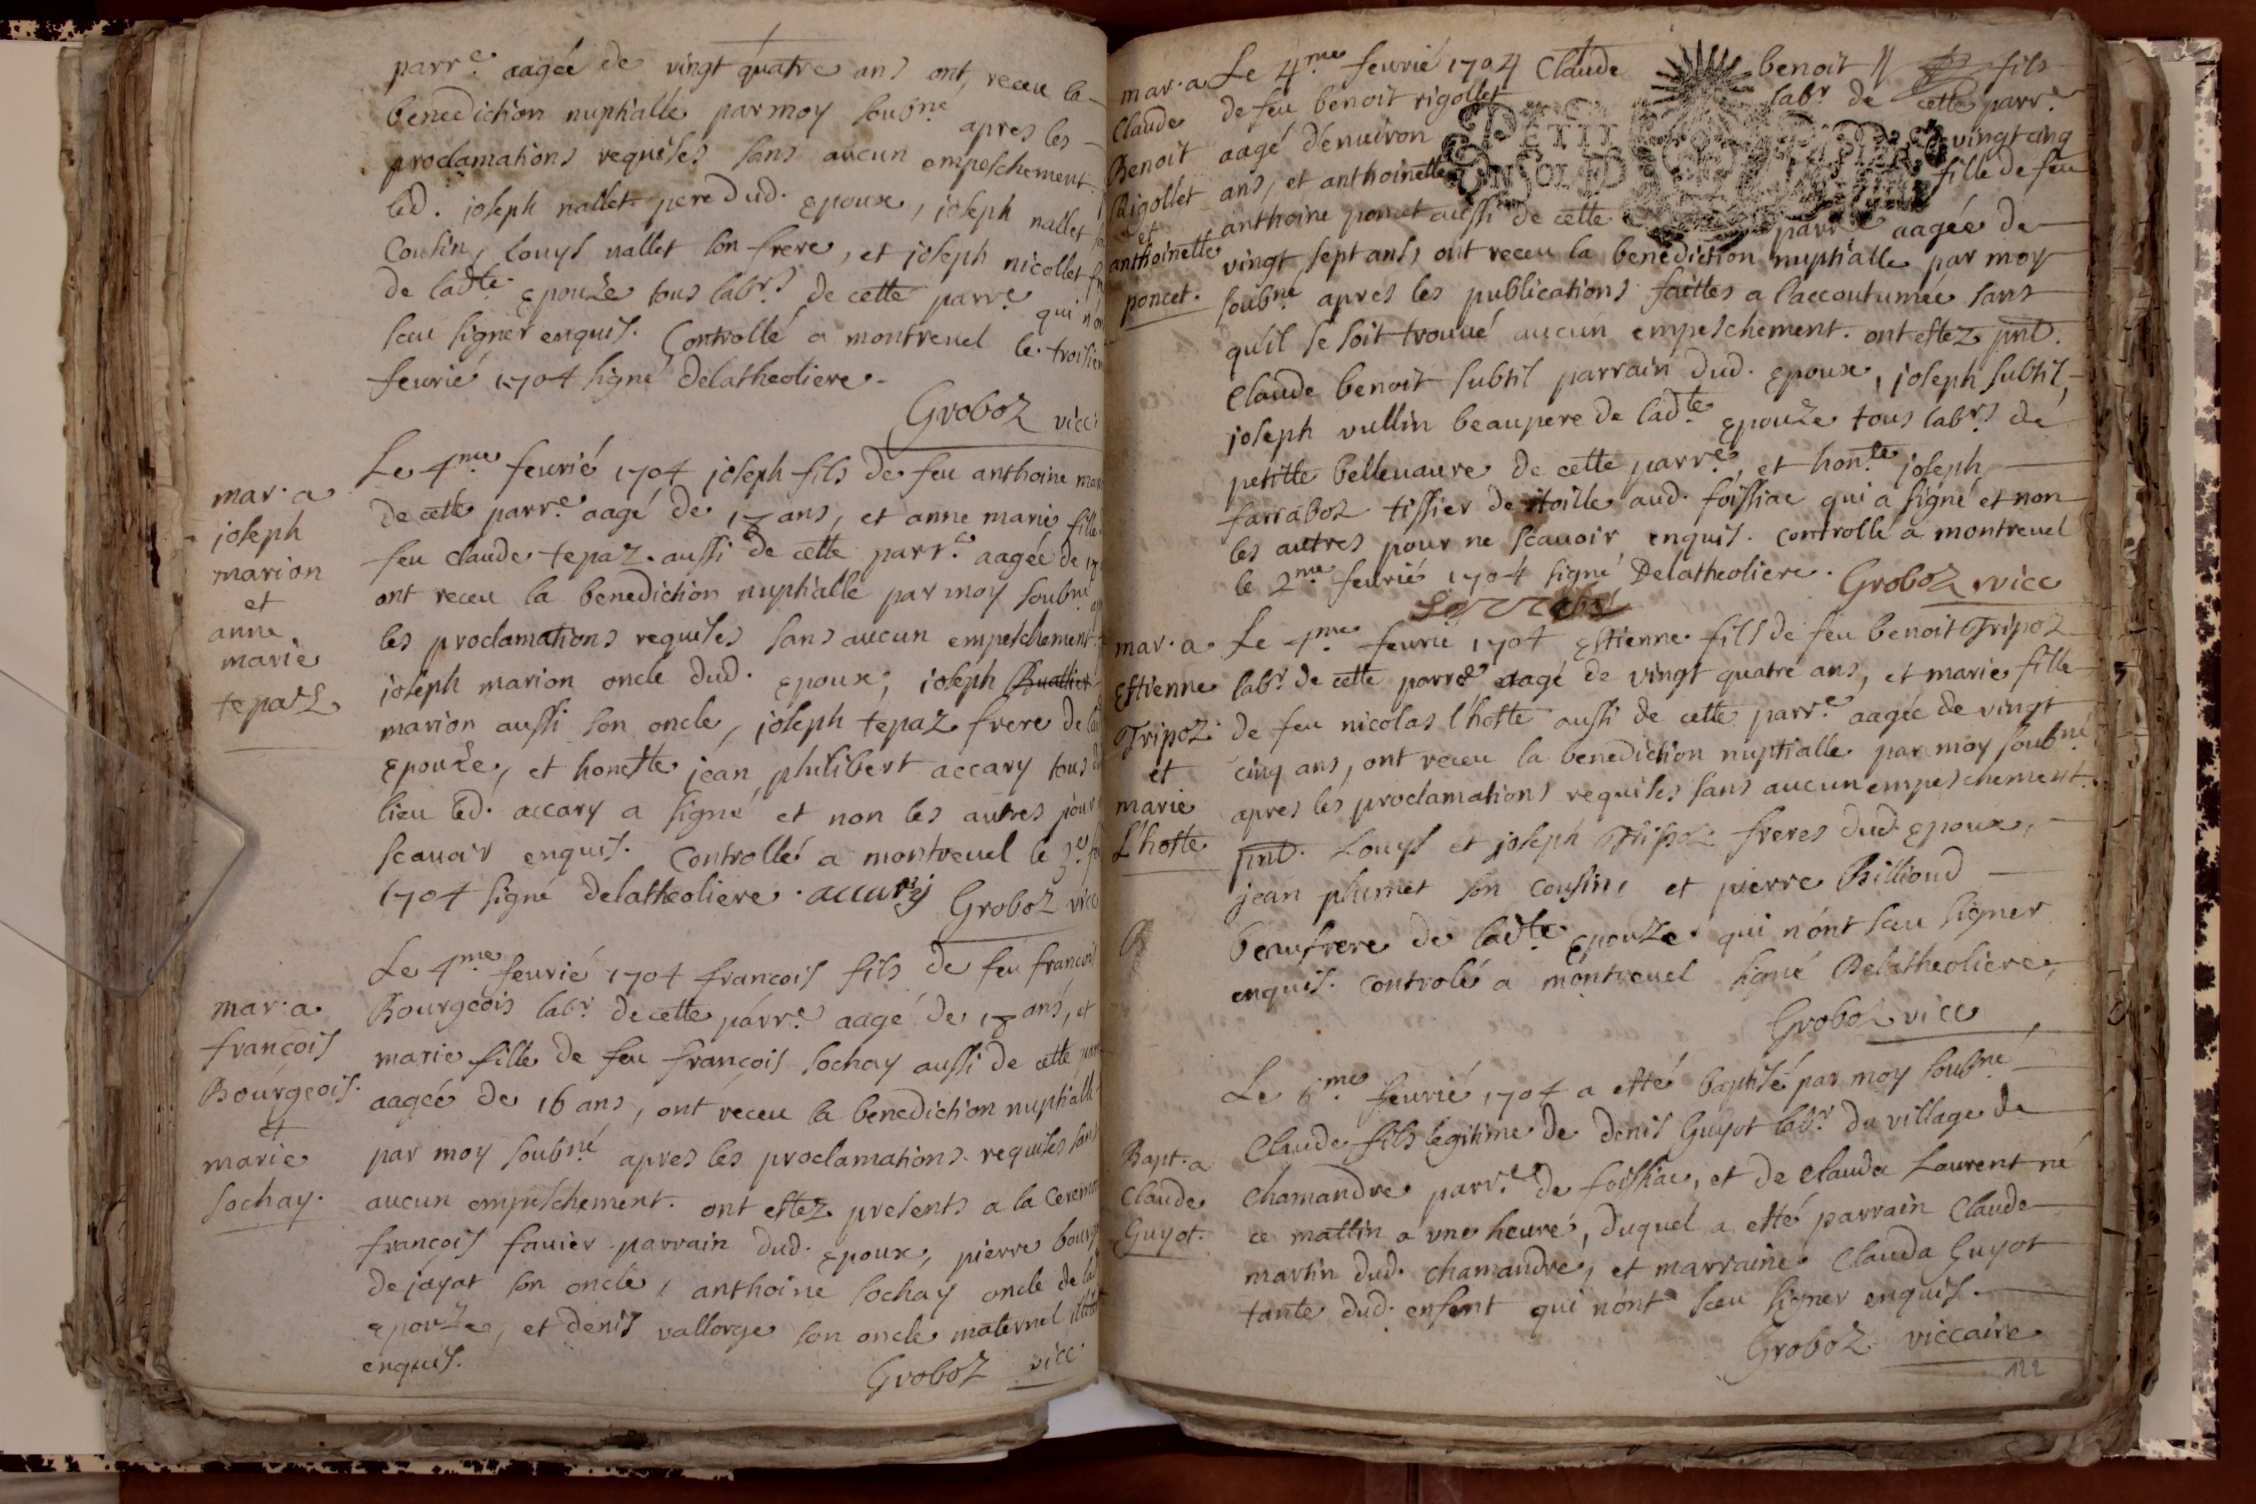 parr.e aagée de vingt quatre ans ont receu la
benediction nuptialle par moy soubne. apres les
proclamations requises sans aucun empeschement.
led. joseph nallet pere dud. epoux, joseph nallet
cousin, Louys nallet son frere, et joseph nicollet
de ladte. epouze tous labrs. de cette parre. qui
sceu signer enquis. Controllé a montrevel le troisie
feurié 1704 signé Delatheoliere.
Groboz vicc
mar. a
joseph
marion
et
anne
marie
tepaz
Le 4me. feurié 1704 joseph fils de feu anthoine
de cette parre. aagé de 17 ans, et anne marie fille
feu claude tepaz aussi de cette parre. aagée de
ont receu la benediction nuptialle par moy soubné
les proclamations requises sans aucun empeschement
joseph marion oncle dud. epoux, joseph
marion aussi son oncle, joseph tepaz frere de
epouze, et honeste jean philibert accary tous
lieu led. accary a signé et non les autres pour
scauoir enquis. Controllé a montreuel le 3e
1704 signé delatheoliere. accary Groboz vicc
mar. a
françois
Bourgeois.
et
marie
sochay.
Le 4me. feurié 1704 françois fils de feu françois
Bourgeois labr. de cette parre. aagé de 18 ans, et
marie fille de feu françois sochay aussi de cette
aagée de 16 ans, ont receu la benediction nuptialle
par moy soubné apres les proclamations requises sans
aucun empeschement. ont estez presents a la
françois fauier parrain dud. epoux, pierre
de jayat son oncle, anthoine sochay oncle de
epouze, et denis vallorge son oncle maternel
enquis.
Groboz vicc
mar. a
Claude
Benoit
Rigollet
et
anthoinette
poncet.
Le 4me feurié 1704 Claude benoit fils
de feu benoit rigollet labr de cette parre.
PETIT PAPIER
UN SOL
aagé denuiron vingt cinq
ans, et anthoinette fille de feu
anthoine poncet aussi de cette parre aagée de
vingt sept ans, ont receu la benediction nuptialle par moy
soubné apres les publications faittes a l'accoutumée sans
qu'il se soit trouué aucun empeschement. ont estez pnt.
Claude benoit subtil parrain dud. epoux, joseph subtil,
joseph vullin beaupere de ladte. epouze tous labrs de
petitte belleuaure de cette parre, et honte. joseph
farraboz tissier de toille aud. foissiac qui a signé et non
les autres pour ne scauoir enquis. controllé a montreuel
le 2me feurié 1704 signé Delatheoliere. Groboz vicc
mar. a
Estienne
Tripoz
et
marie
L'hoste
Le 4me. feurié 1704 Estienne fils de feu benoit Tripoz
labr. de cette parre aagé de vingt quatre ans, et marie fille
de feu nicolas l'hoste aussi de cette parre. aagée de vingt
cinq ans, ont receu la benediction nuptialle par moy soubné
apres les proclamations requises sans aucun empeschement.
pnt. Louys et joseph Tripoz freres dud. epoux,
jean plumet son cousin, et pierre Billioud
beaufrere de ladte. epouze qui n'ont sceu signer
enquis. Controlé a montreuel signé Delatheoliere,
Groboz vicc
Bapt. a
Claude
Guyot.
Le 6me feurié 1704 a esté baptisé par moy soubné
Claude fils legitime de denis Guyot labr. du village de
Chamandre parre. de foissiac, et de Clauda Laurent né
ce mattin a une heure, duquel a esté parrain Claude
martin dud. chamandre, et marraine Clauda Guyot
tante dud. enfent qui n'ont sceu signer enquis.
Groboz viccaire
122